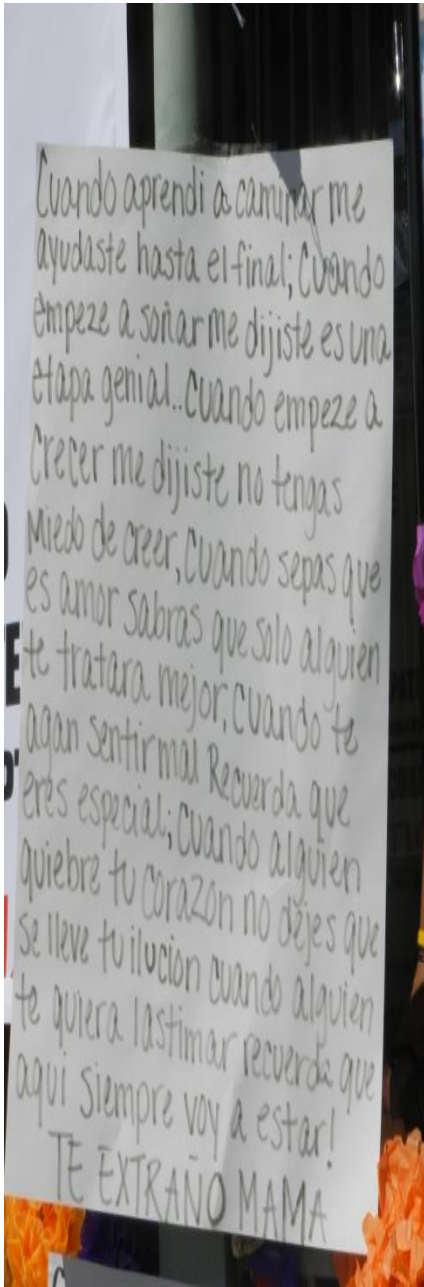 Cuando aprendi a caminar me
ayudaste hasta el final; Cuando
empeze a soñar me dijiste es una
etapa genial.. Cuando empeze a
Crecer me dijiste no tengas
Miedo de creer, Cuando sepas que
es amor sabras que solo alguien
te tratara mejor, Cuando te
agan sentir mal Recuerda que
eres especial; Cuando alguien
quiebre tu corazon no dejes que
se lleve tu ilucion cuando alguien
te quiera lastimar recuerda que
aqui siempre voy a estar!
TE EXTRAÑO MAMA